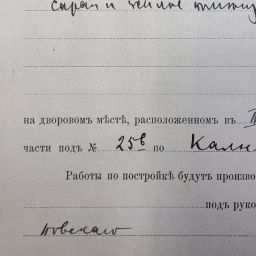 сарай и
на дворовомъ мѣстѣ, расположенномъ въ
части подъ № 25в по Калн
Работы по постройкѣ будутъ произво
подъ руко
новскаго